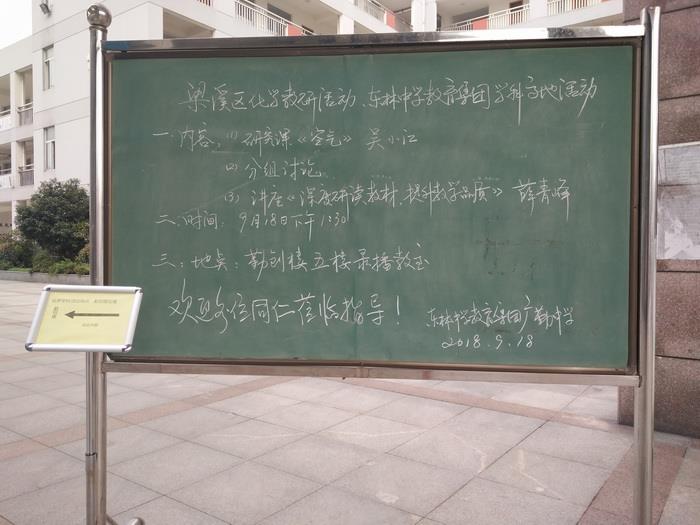 梁溪区化学教研活动、东林中学教育集团学科基地活动
一、内容：(1) 研究课《空气》 吴小江
(2) 分组讨论
(3) 讲座《深度研读教材，提升教学品质》 薛青峰
二、时间：9月18日下午1:30
三：地点：勤创楼五楼录播教室
欢迎各位同仁莅临指导！
东林中学教育集团广勤中学
2018.9.18